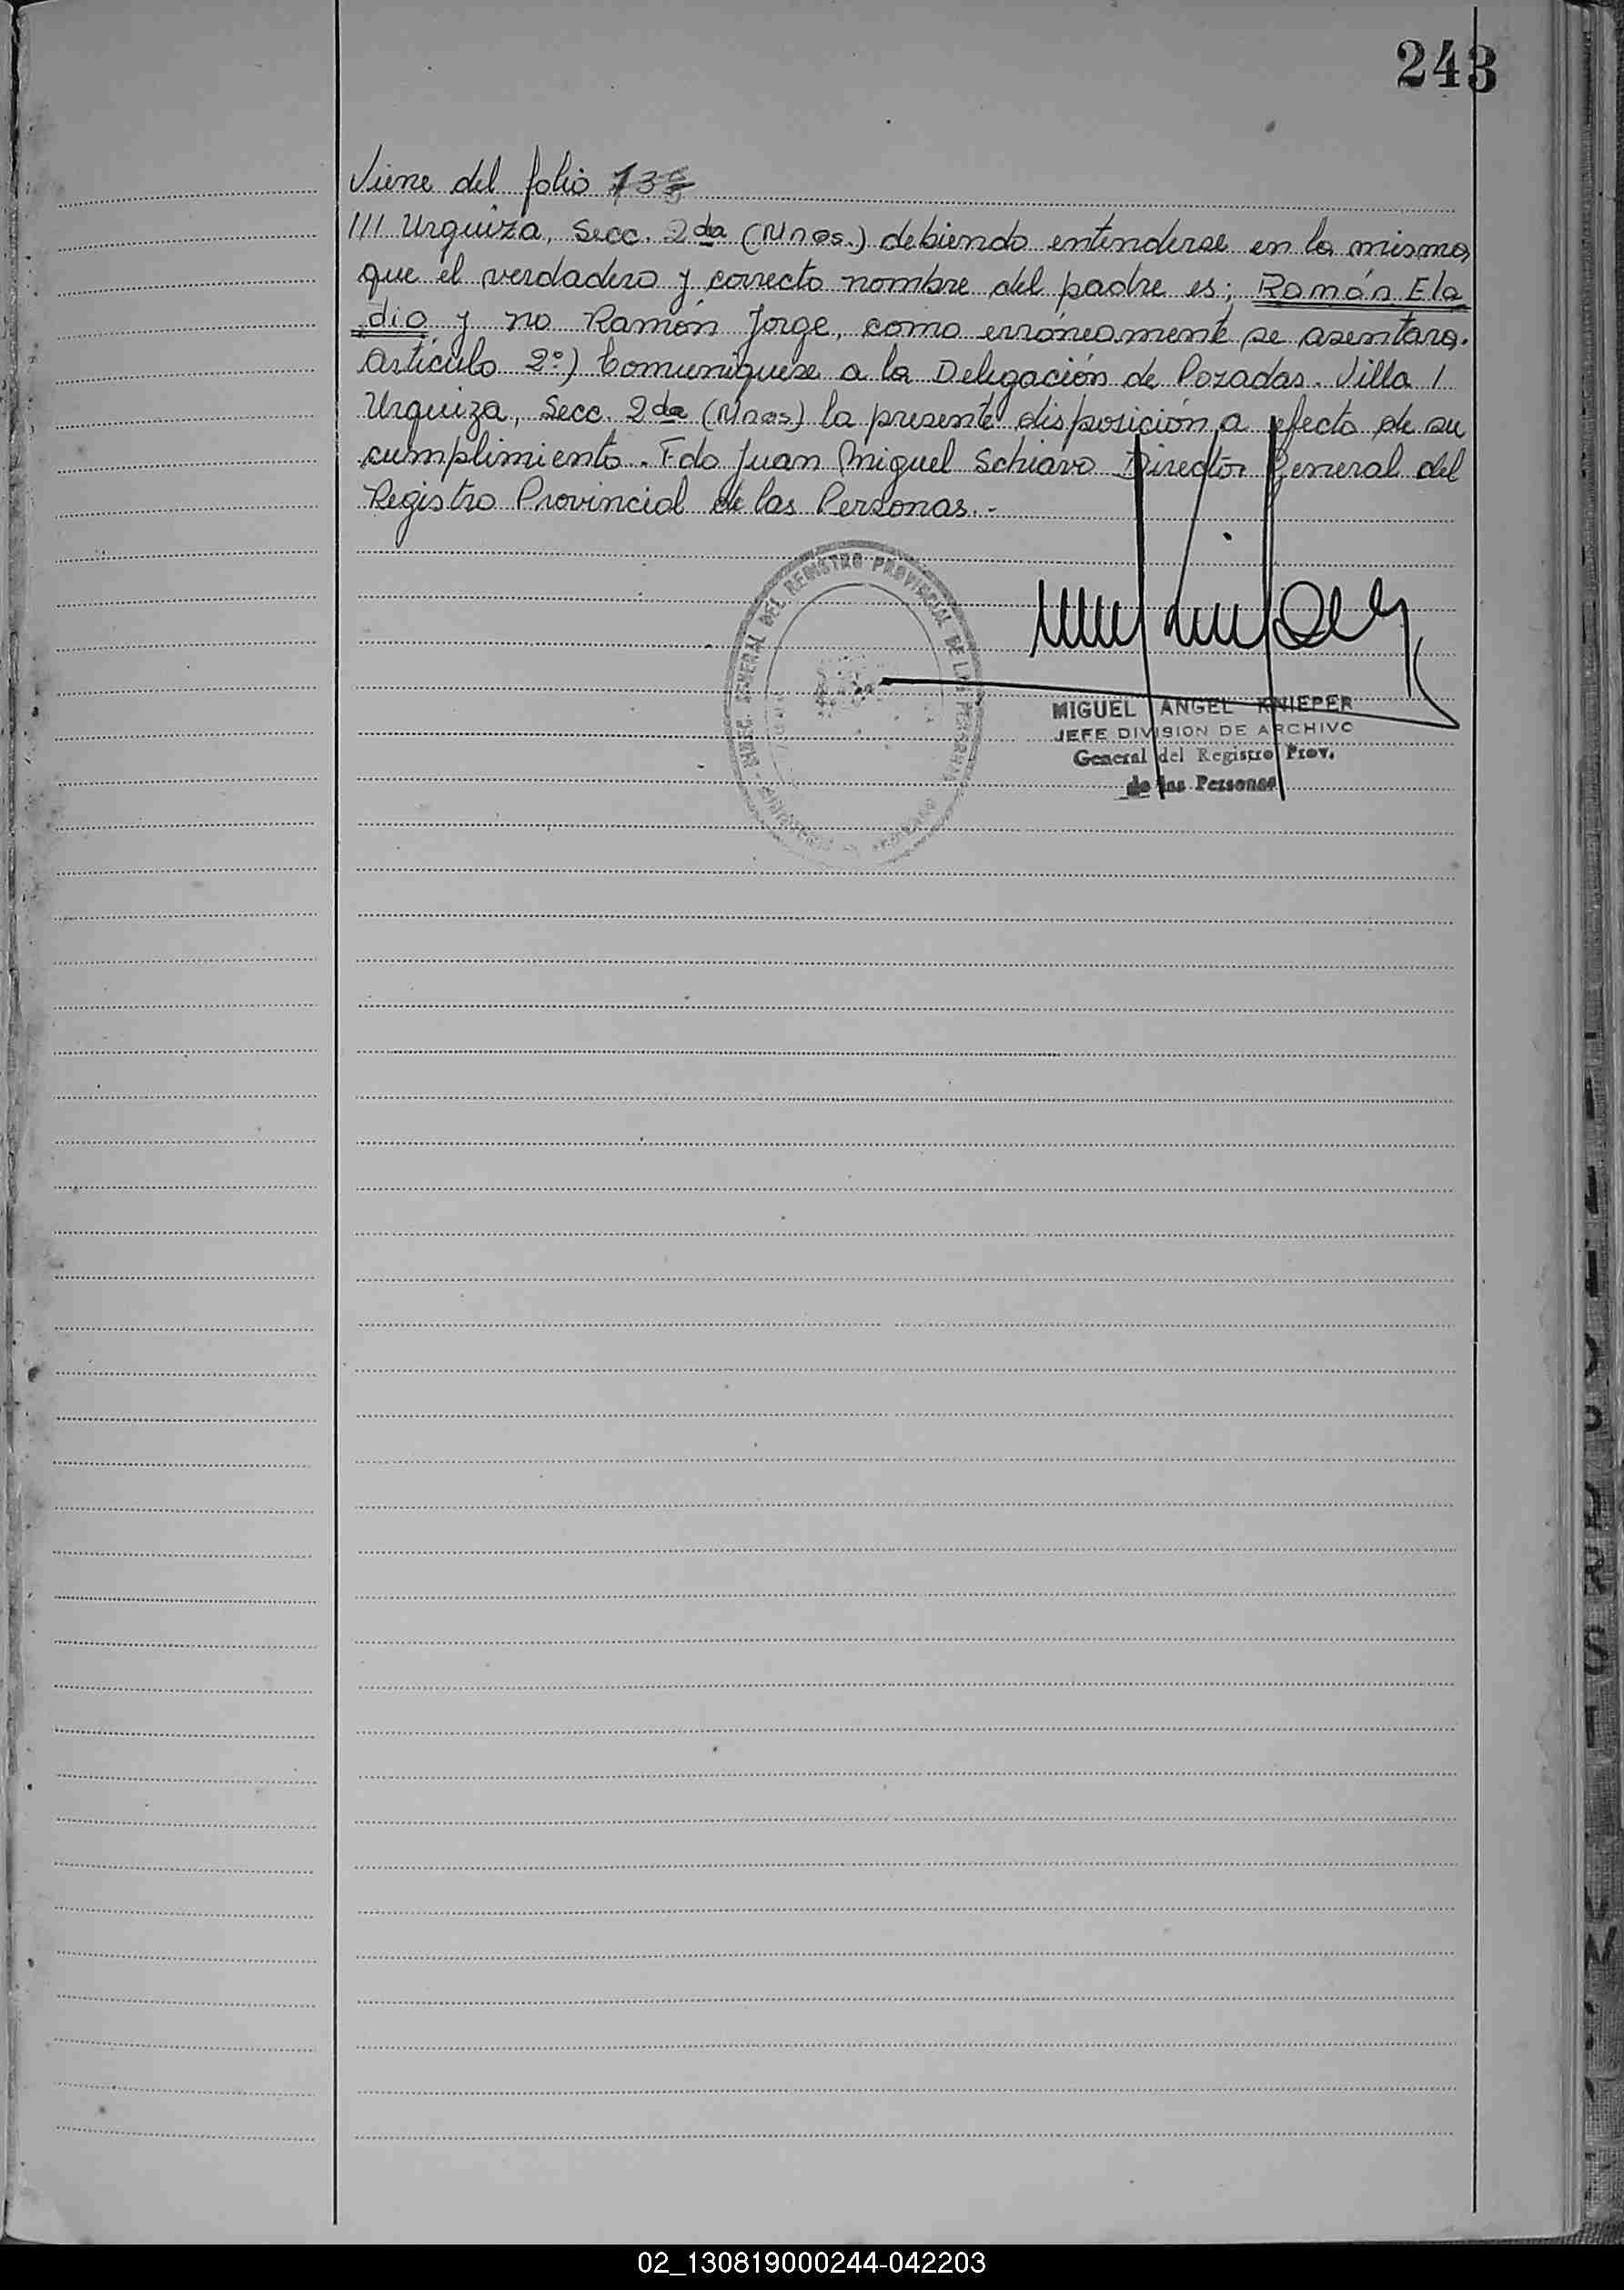 243
Viene del folio 13
/// Urquiza, Secc. 2da (Mnes.) debiendo entenderse en la misma,
que el verdadero y correcto nombre del padre es; Ramón Ela
dio y no Ramón Jorge, como erróneamente se asentara.
Artículo 2º) Comuníquese a la Delegación de Posadas. Villa /
Urquiza, Secc. 2da (Mnes) la presente disposición a efecto de su
cumplimiento. Fdo Juan Miguel Schiavo Director General del
Registro Provincial de las Personas.-
GENERAL DEL REGISTRO PROVINCIAL DE LAS PERSONAS
MIGUEL ANGEL KNIEPER
JEFE DIVISION DE ARCHIVO
General del Registro Prov.
de las Personas
02_130819000244-042203